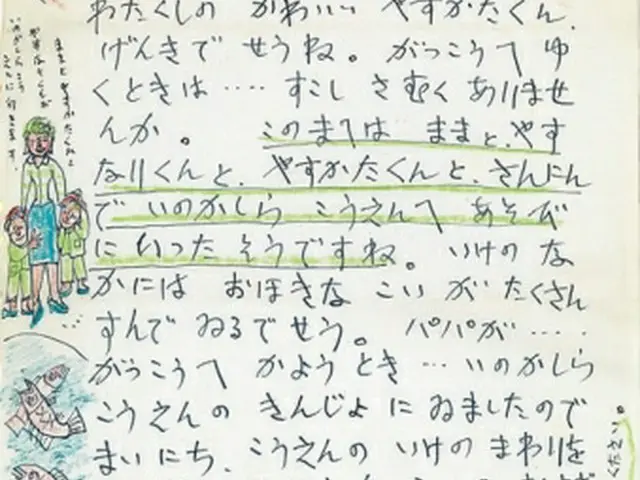 わたくしの かわいい やすかたくん.
げんきで せうね。 がっこうへ ゆ
くときは ‥‥ すこし さむく ありませ
んか 。 このまへは ままと、やす
なりくんと、やすかたくんと、さんにん
で いのかしら こうえんへ あそび
に いった そうですね。 いけの な
かには おほきな こい が たくさん
すんで ゐるでせう。 パパが ‥‥
がっこうへ かよう とき ‥ いのかしら
こうえんの きんじょ に ゐましたので
まいにち、こうえんの いけの まわりを
ままと やすかたくんと
ください。